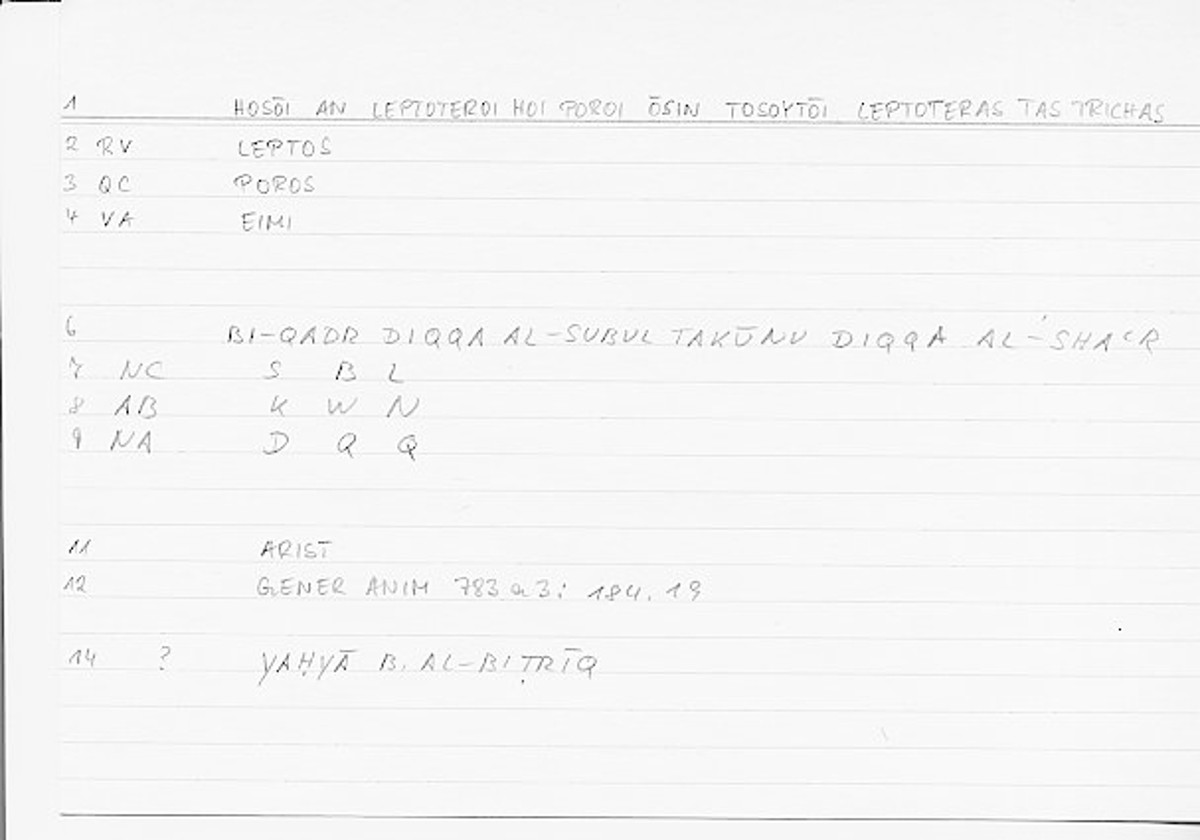 1 HOSŌI AN LEPTOTEROI HOI POROI ŌSIN TOSOYTŌI LEPTOTERAS TAS TRICHAS
2 RV LEPTOS
3 QC POROS
4 VA EIMI
6 BI-QADR DIQQA AL-SUBUL TAKŪNU DIQQA AL-SHAʿR
7 NC S B L
8 AB K W N
9 NA D Q Q
11 ARIST
12 GENER ANIM 783 a 3: 184.19
14 ? YAḤYĀ B. AL-BIṬRĪQ